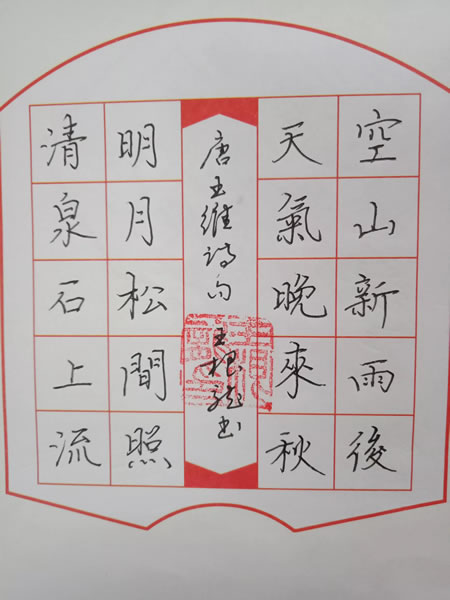 空山新雨後
天氣晚來秋
唐王維詩句 王根龍書
明月松間照
清泉石上流